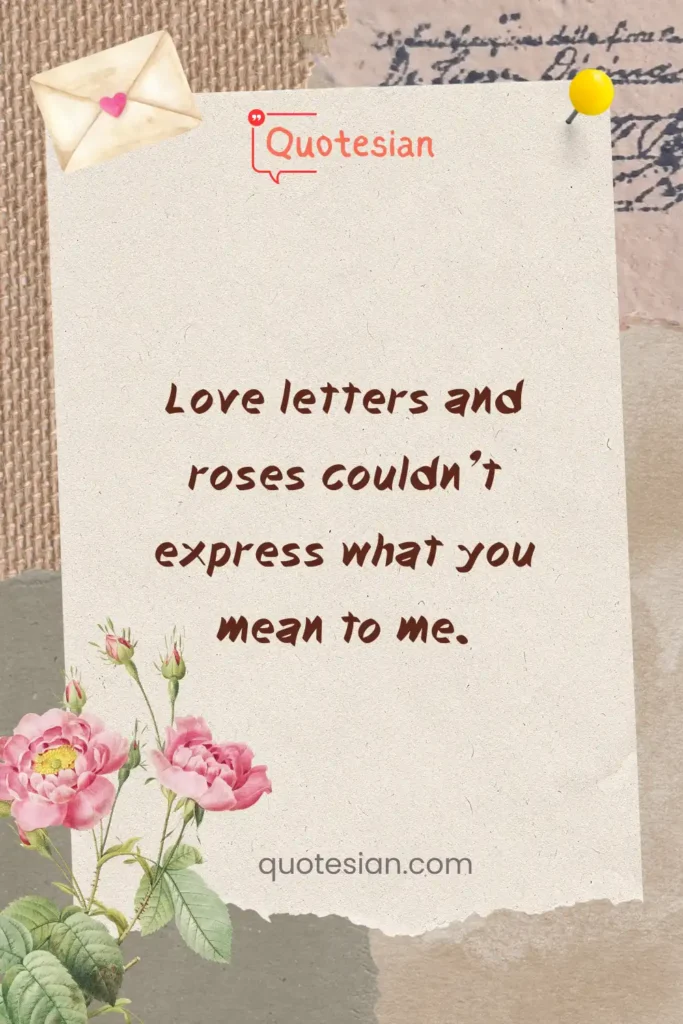 Quotesian
Love letters and
roses couldn't
express what you
mean to me.
quotesian.com